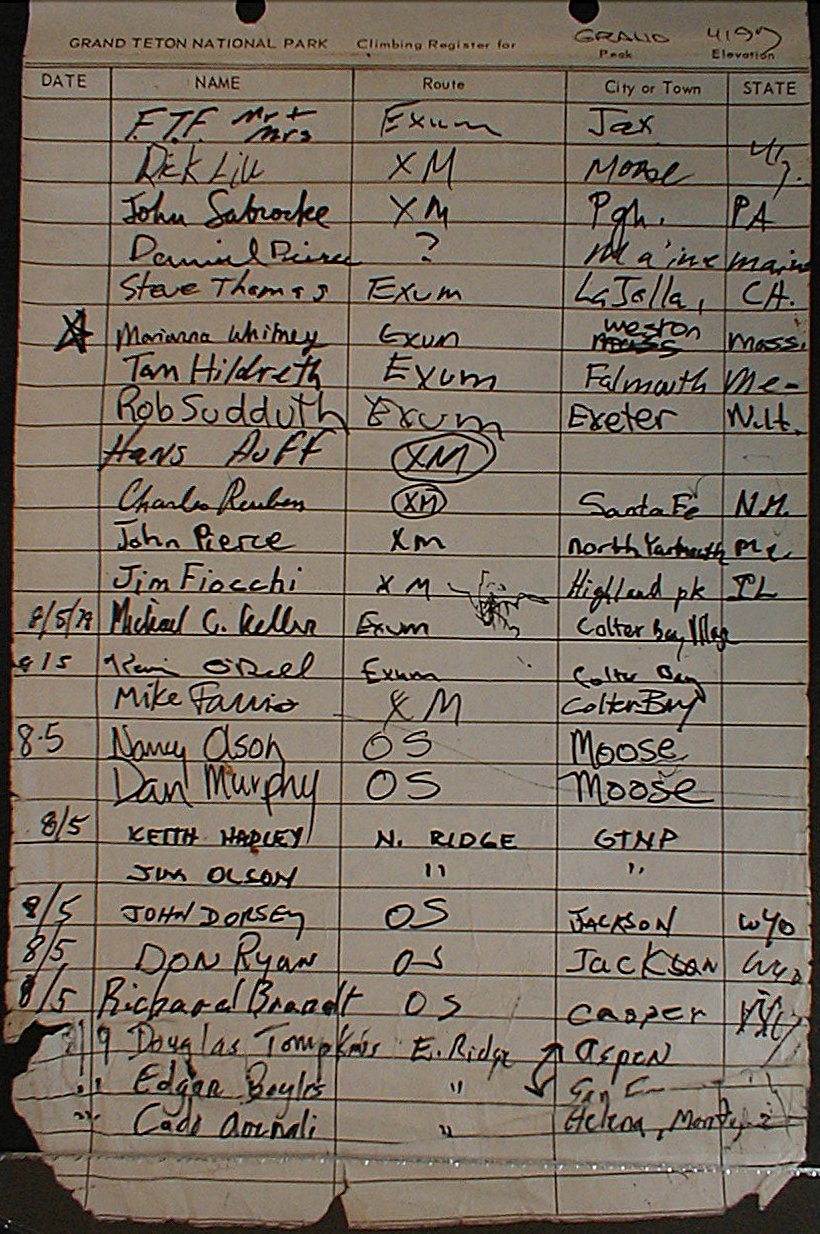 GRAND TETON NATIONAL PARK Climbing Register for GRAND 4197
Peak Elevation
DATE NAME Route City or Town STATE
F.T.F. Mr + Mrs Exum Jax
Dick Lill XM Moose
John Sabrocke XM Pgh. PA
Daniel Pierce ? Ma'ine maine
Steve Thomas Exum LaJalla, CA.
Marianna Whitney Exum weston mass.
Tom Hildreth Exum Falmouth Me-
Rob Sudduth Exum Exeter N.H.
Hans Auff XM
Charles Reuben XM Santa Fe N.M.
John Pierce XM north Yarmouth Me.
Jim Fiocchi XM Highland pk IL
8/5/79 Michael C. Keller Exum Colter Bay Village
8/5 O'Dell Exum Colter Bay
Mike XM Colter Bay
8.5 Nancy Olson OS Moose
Dan Murphy OS Moose
8/5 KEITH HADLEY N. RIDGE GTNP
JIM OLSON " "
8/5 JOHN DORSEY OS JACKSON WYO
8/5 DON RYAN OS Jackson Wyo
8/5 Richard Brandt OS Casper
Douglas Tompkins E. Ridge Aspen
" Edgar Boyles "
" " Helena, Mont